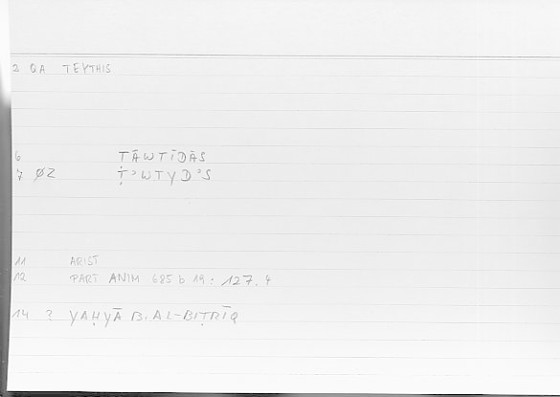 2 QA TEYTHIS
6 TĀWTĪDĀS
7 ØZ Ṭ'WTYD'S
11 ARIST
12 PART ANIM 685 b 19 : 127.9
14 ? YAḤYĀ B. AL-BIṬRĪQ